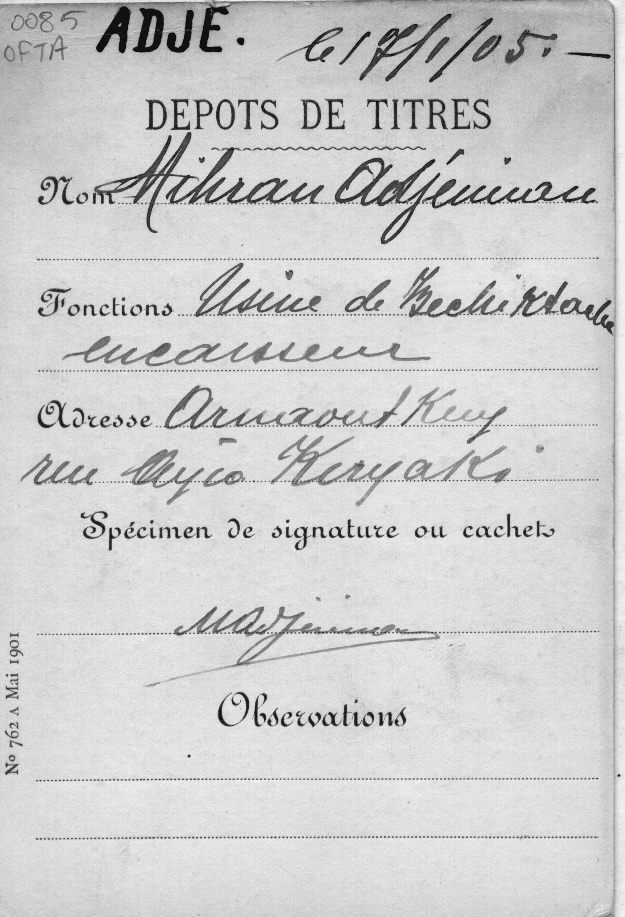 0085
OFTA
ADJE. le 17/1/05. —
DEPOTS DE TITRES
Nom Mihran Adjémian
Fonctions Usine de Bechiktache
encaisseur
Adresse Arnaout Keuy
rue Ayia Kuryaki
Spécimen de signature ou cachet
MAdjémian
Observations
No 762 A Mai 1901